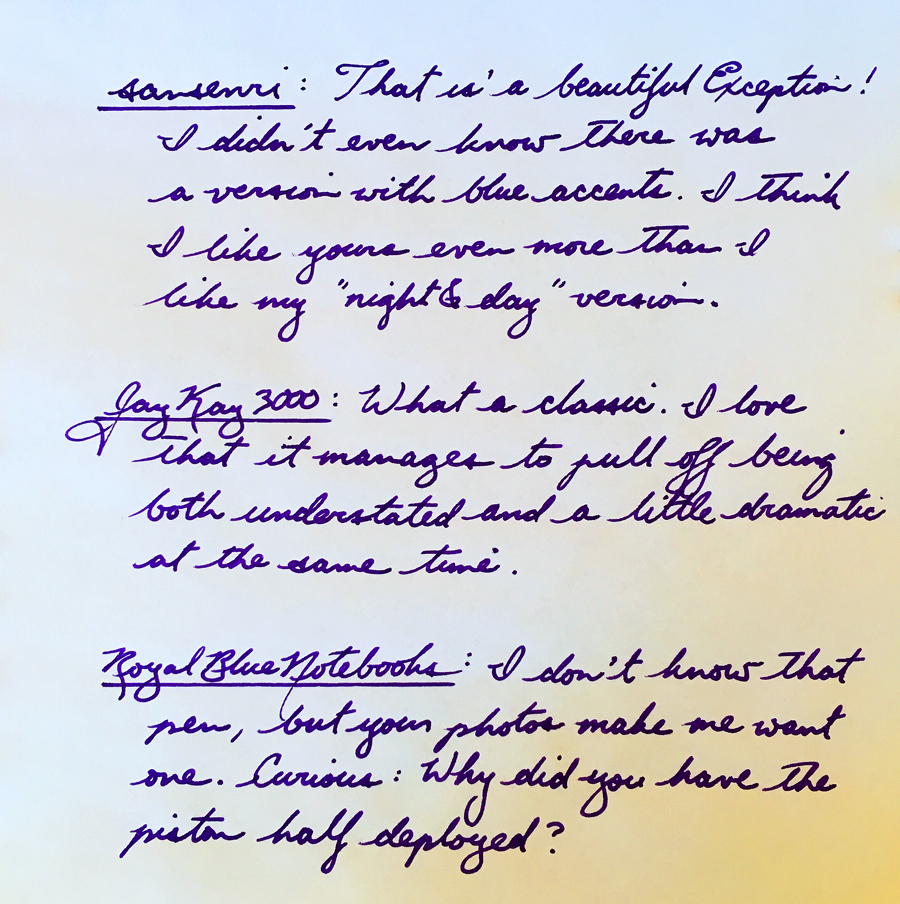 sansenri: That is a beautiful Exception!
I didn't even know there was
a version with blue accents. I think
I like yours even more than I
like my "night & day" version.
Jay Kay 3000: What a classic. I love
that it manages to pull off being
both understated and a little dramatic
at the same time.
Royal Blue Notebooks: I don't know that
pen, but your photos make me want
one. Curious: Why did you have the
piston half deployed?